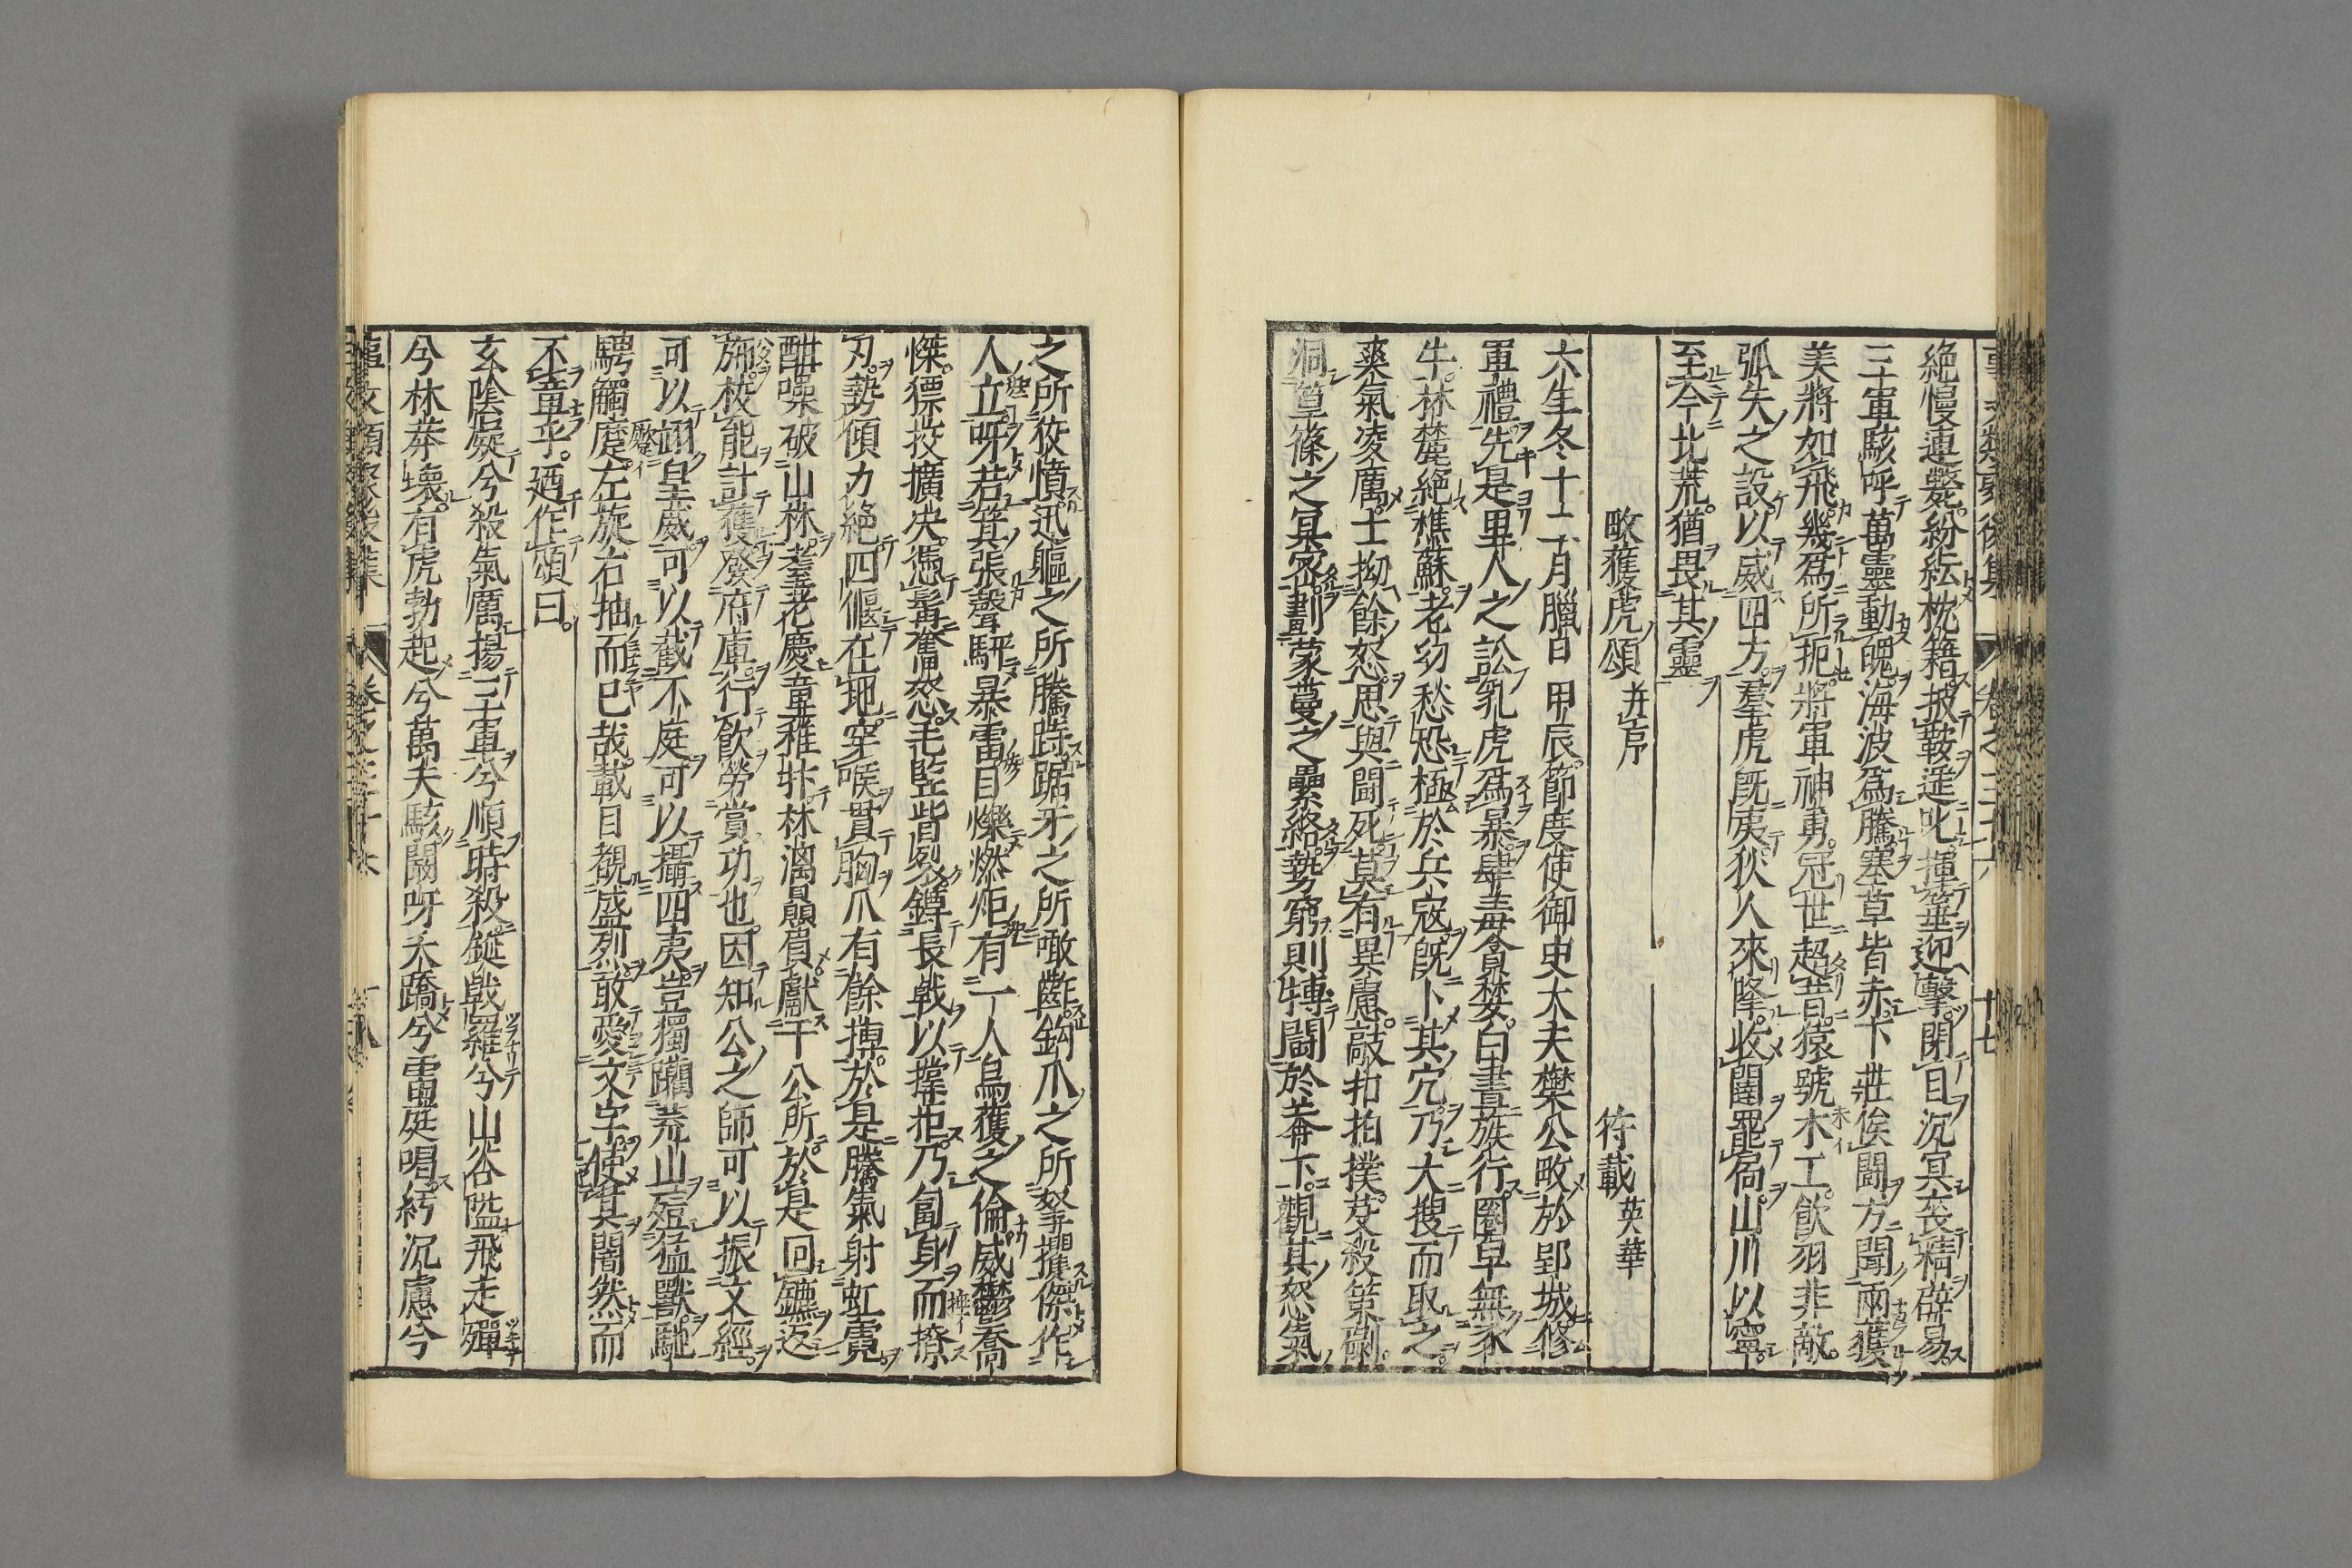 絶慢連斃紛紜枕籍披鞍逆叱揮箠迎擊閉目沉冥喪精辟易
三軍駭呼萬靈動魄海波爲騰塞草皆赤卞莊俟鬪方聞兩獲
美將如飛幾爲所扼將軍神勇冠世超昔猿號木工飲羽非敵
弧矢之設以威四方羣虎旣夷狄人來降收闕罷扃山川以寧
至今北荒猶畏其靈
畋獲虎頌 并序 符載 英華
六年冬十二月臘日甲辰節度使御史大夫樊公畋於郢城修
軍禮先是里人之訟乳虎爲暴肆毒貪婪白晝族行圈皁無豕
牛林麓絶樵蘇老幼愁怨極於兵寇旣卜其穴乃大搜而取之
爽氣凌厲士拗餘怒思與鬪死莫有異慮敲扣拍撲芟殺策䂿
洞篁篠之冥密劃蒙蔓之纍絡勢窮則摶鬪於莽下觀其怒氣
之所狡憤迅軀之所騰踔踞牙之所噉齚鈎爪之所拏攫傑作
人立呀若箕張聲駍暴雷目爍燃炬有一人烏獲之倫威鬱喬
傑獷投擴决憑髯奮怒毛竪眥裂鐏長戟以撑拒乃匐身而撩
刃勢傾力絶四偃在地穿喉貫胸爪有餘摶於是騰氣射虹霓
酣噪破山林耋老慶童稚抃林漓贔屓獻于公所於是回鑣返
斾校能計獲發府庫行飲勞賞功也因知公之師可以振文經
可以翊皇威可以截不庭可以攝四夷豈獨躪荒山殪猛獸馳
騁觸麼左旋右抽而已哉載目覩盛烈敢愛文字使其闇然而
不章乎廼作頌曰
玄陰凝兮殺氣厲揚三軍兮順時殺鋋戟羅兮山谷隘飛走殫
兮林莽壞有虎勃起兮萬夫駭闞呀禾蹻兮雷霆唱紆沉慮兮